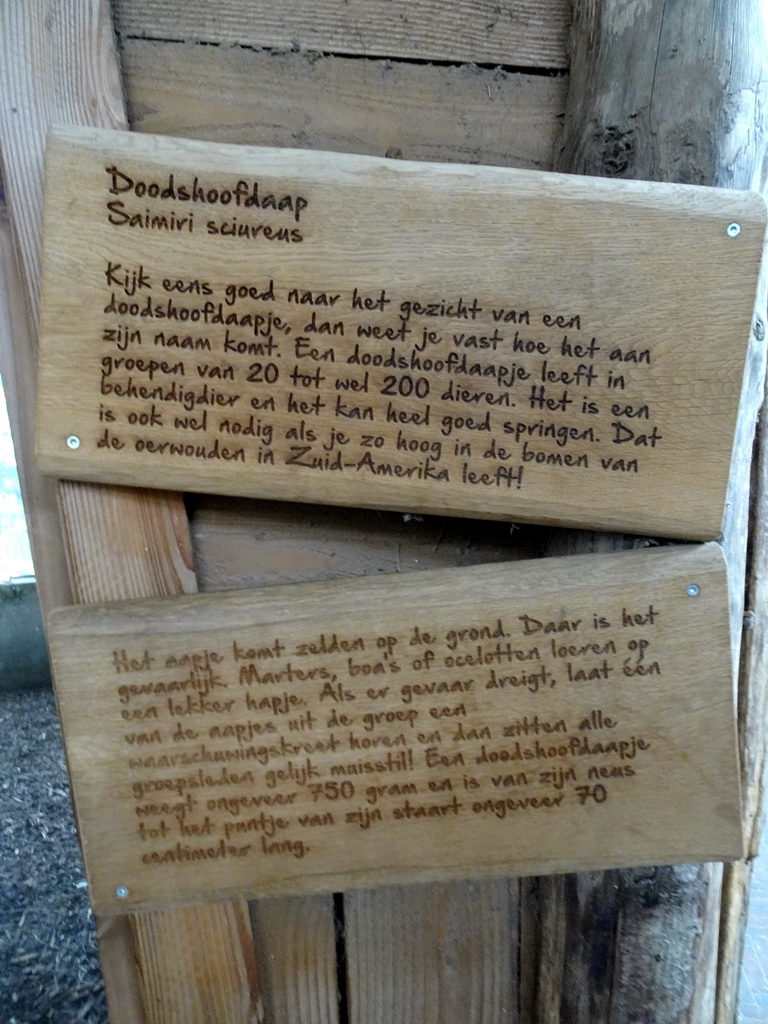 Doodshoofdaap
Saimiri sciureus
Kijk eens goed naar het gezicht van een
doodshoofdaapje, dan weet je vast hoe het aan
zijn naam komt. Een doodshoofdaapje leeft in
groepen van 20 tot wel 200 dieren. Het is een
behendigdier en het kan heel goed springen. Dat
is ook wel nodig als je zo hoog in de bomen van
de oerwouden in Zuid-Amerika leeft!
Het aapje komt zelden op de grond. Daar is het
gevaarlijk. Marters, boa's of ocelotten loeren op
een lekker hapje. Als er gevaar dreigt, laat één
van de aapjes uit de groep een
waarschuwingskreet horen en dan zitten alle
groepsleden gelijk muisstil! Een doodshoofdaapje
weegt ongeveer 750 gram en is van zijn neus
tot het puntje van zijn staart ongeveer 70
centimeter lang.